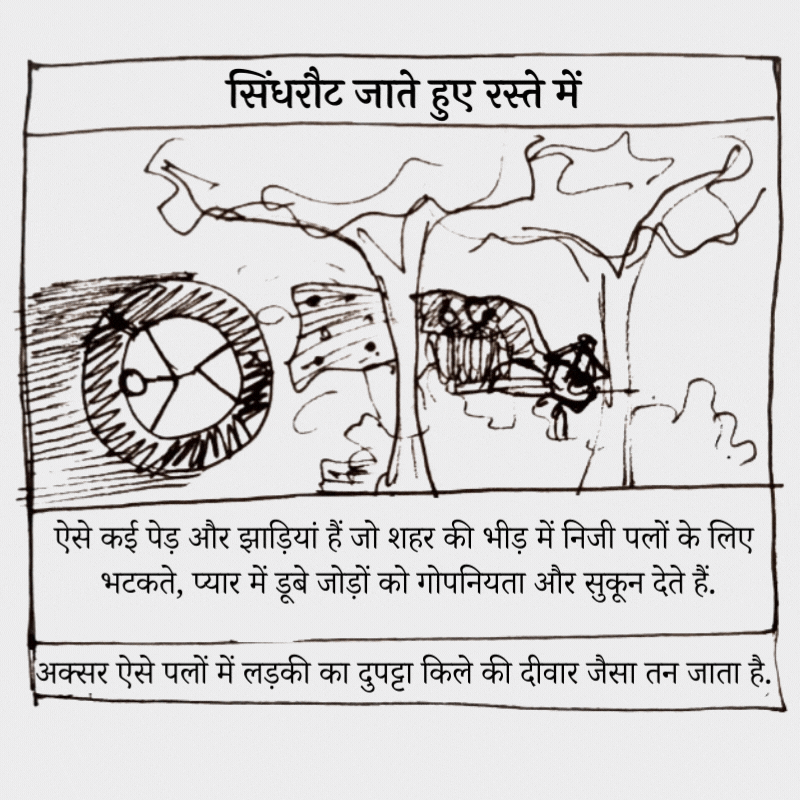 सिंधरौट जाते हुए रस्ते में
ऐसे कई पेड़ और झाड़ियां हैं जो शहर की भीड़ में निजी पलों के लिए
भटकते, प्यार में डूबे जोड़ों को गोपनियता और सुकून देते हैं.
अक्सर ऐसे पलों में लड़की का दुपट्टा किले की दीवार जैसा तन जाता है.